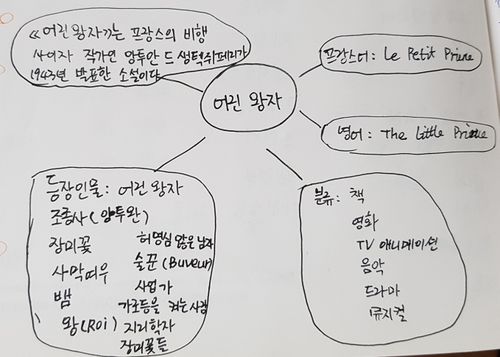 ≪어린 왕자≫는 프랑스의 비행
사이자 작가인 앙투안 드 생텍쥐페리가
1943년 발표한 소설이다
어린 왕자
프랑스어: Le Petit Prince
영어: The Little Prince
등장인물: 어린 왕자
조종사(앙투완)
장미꽃
사막여우
뱀
왕(Roi)
허영심 많은 남자
술꾼(Buveur)
사업가
가로등을 켜는 사람
지리학자
장미꽃들
분류: 책
영화
TV 애니메이션
음악
드라마
뮤지컬